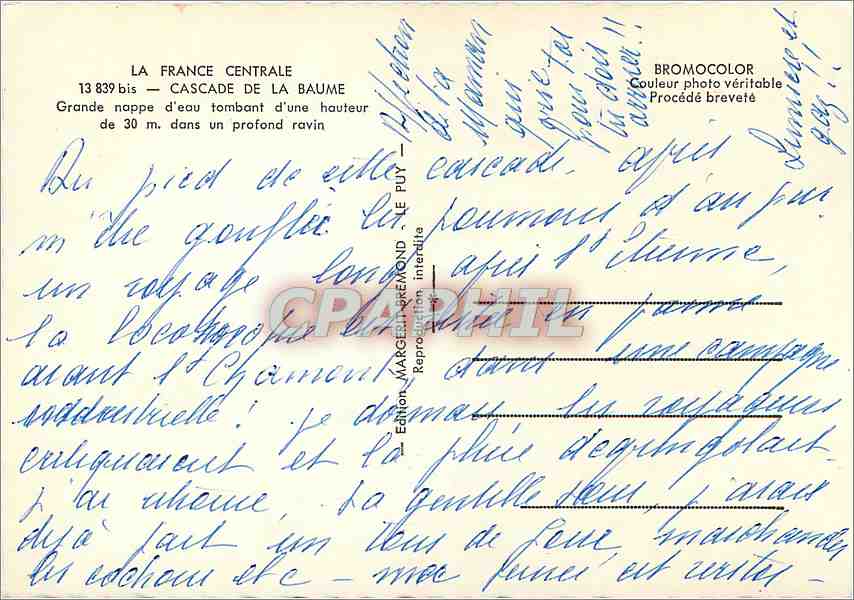 LA FRANCE CENTRALE
13 839 bis — CASCADE DE LA BAUME
Grande nappe d'eau tombant d'une hauteur
de 30 m. dans un profond ravin
BROMOCOLOR
Couleur photo véritable
Procédé breveté
— Edition MARGERIT-BRÉMOND - LE PUY —
Reproduction interdite
CPARHIL
Au pied de cette cascade. après
m'être gonflée les poumons d'air pur
un voyage long, après St Etienne,
la locomotive en panne
avant St Chamond, dans une campagne
industrielle! je dormais les voyageurs
critiquaient et la pluie dégringolait.
j'ai La gentille j'avais
déjà fait un tour de foire, marchandé
les cochons etc —
Affection
de la
Maman
qui
pour toi
tu dois !!
arroser !!
Lumière et
gaz !!